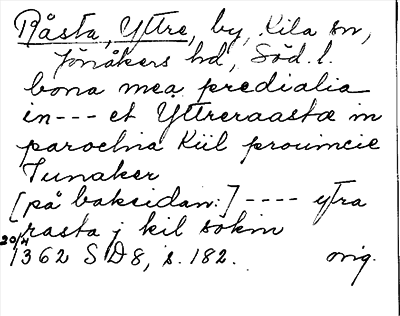 Råsta, Yttre, by, Kila sn,
Jönåkers hd, Söd. l.
bona mea predialia
in --- et Yttreraastæ in
parochia Kiil prouincie
Junaker
[på baksidan:] ---- ytra
rasta j kil sokin
20/4 1362 SD8, s. 182. orig.